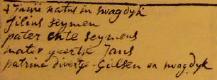 4 Junii natus in swagdyk
filius seymen
pater ehte seymens
mater geertie Jans
patrini diverte Gielsen en swagdyk